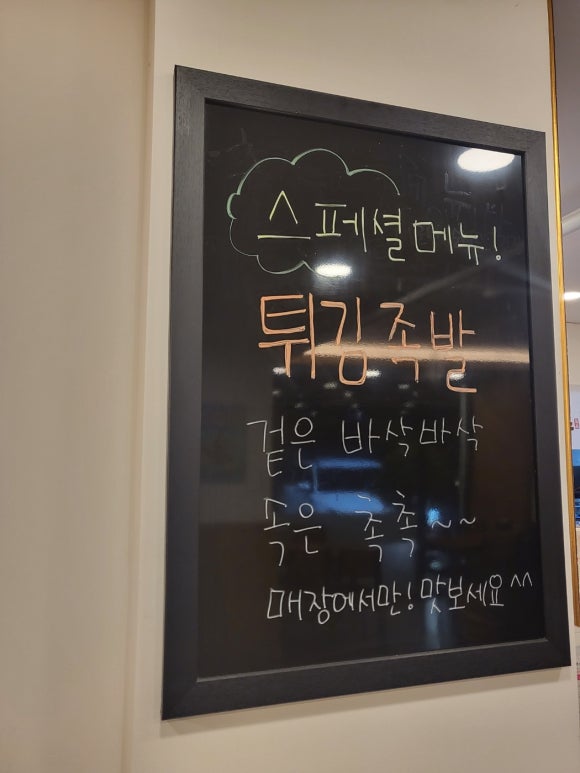 스페셜메뉴!
튀김족발
겉은 바삭바삭
속은 촉촉~~
매장에서만! 맛보세요^^